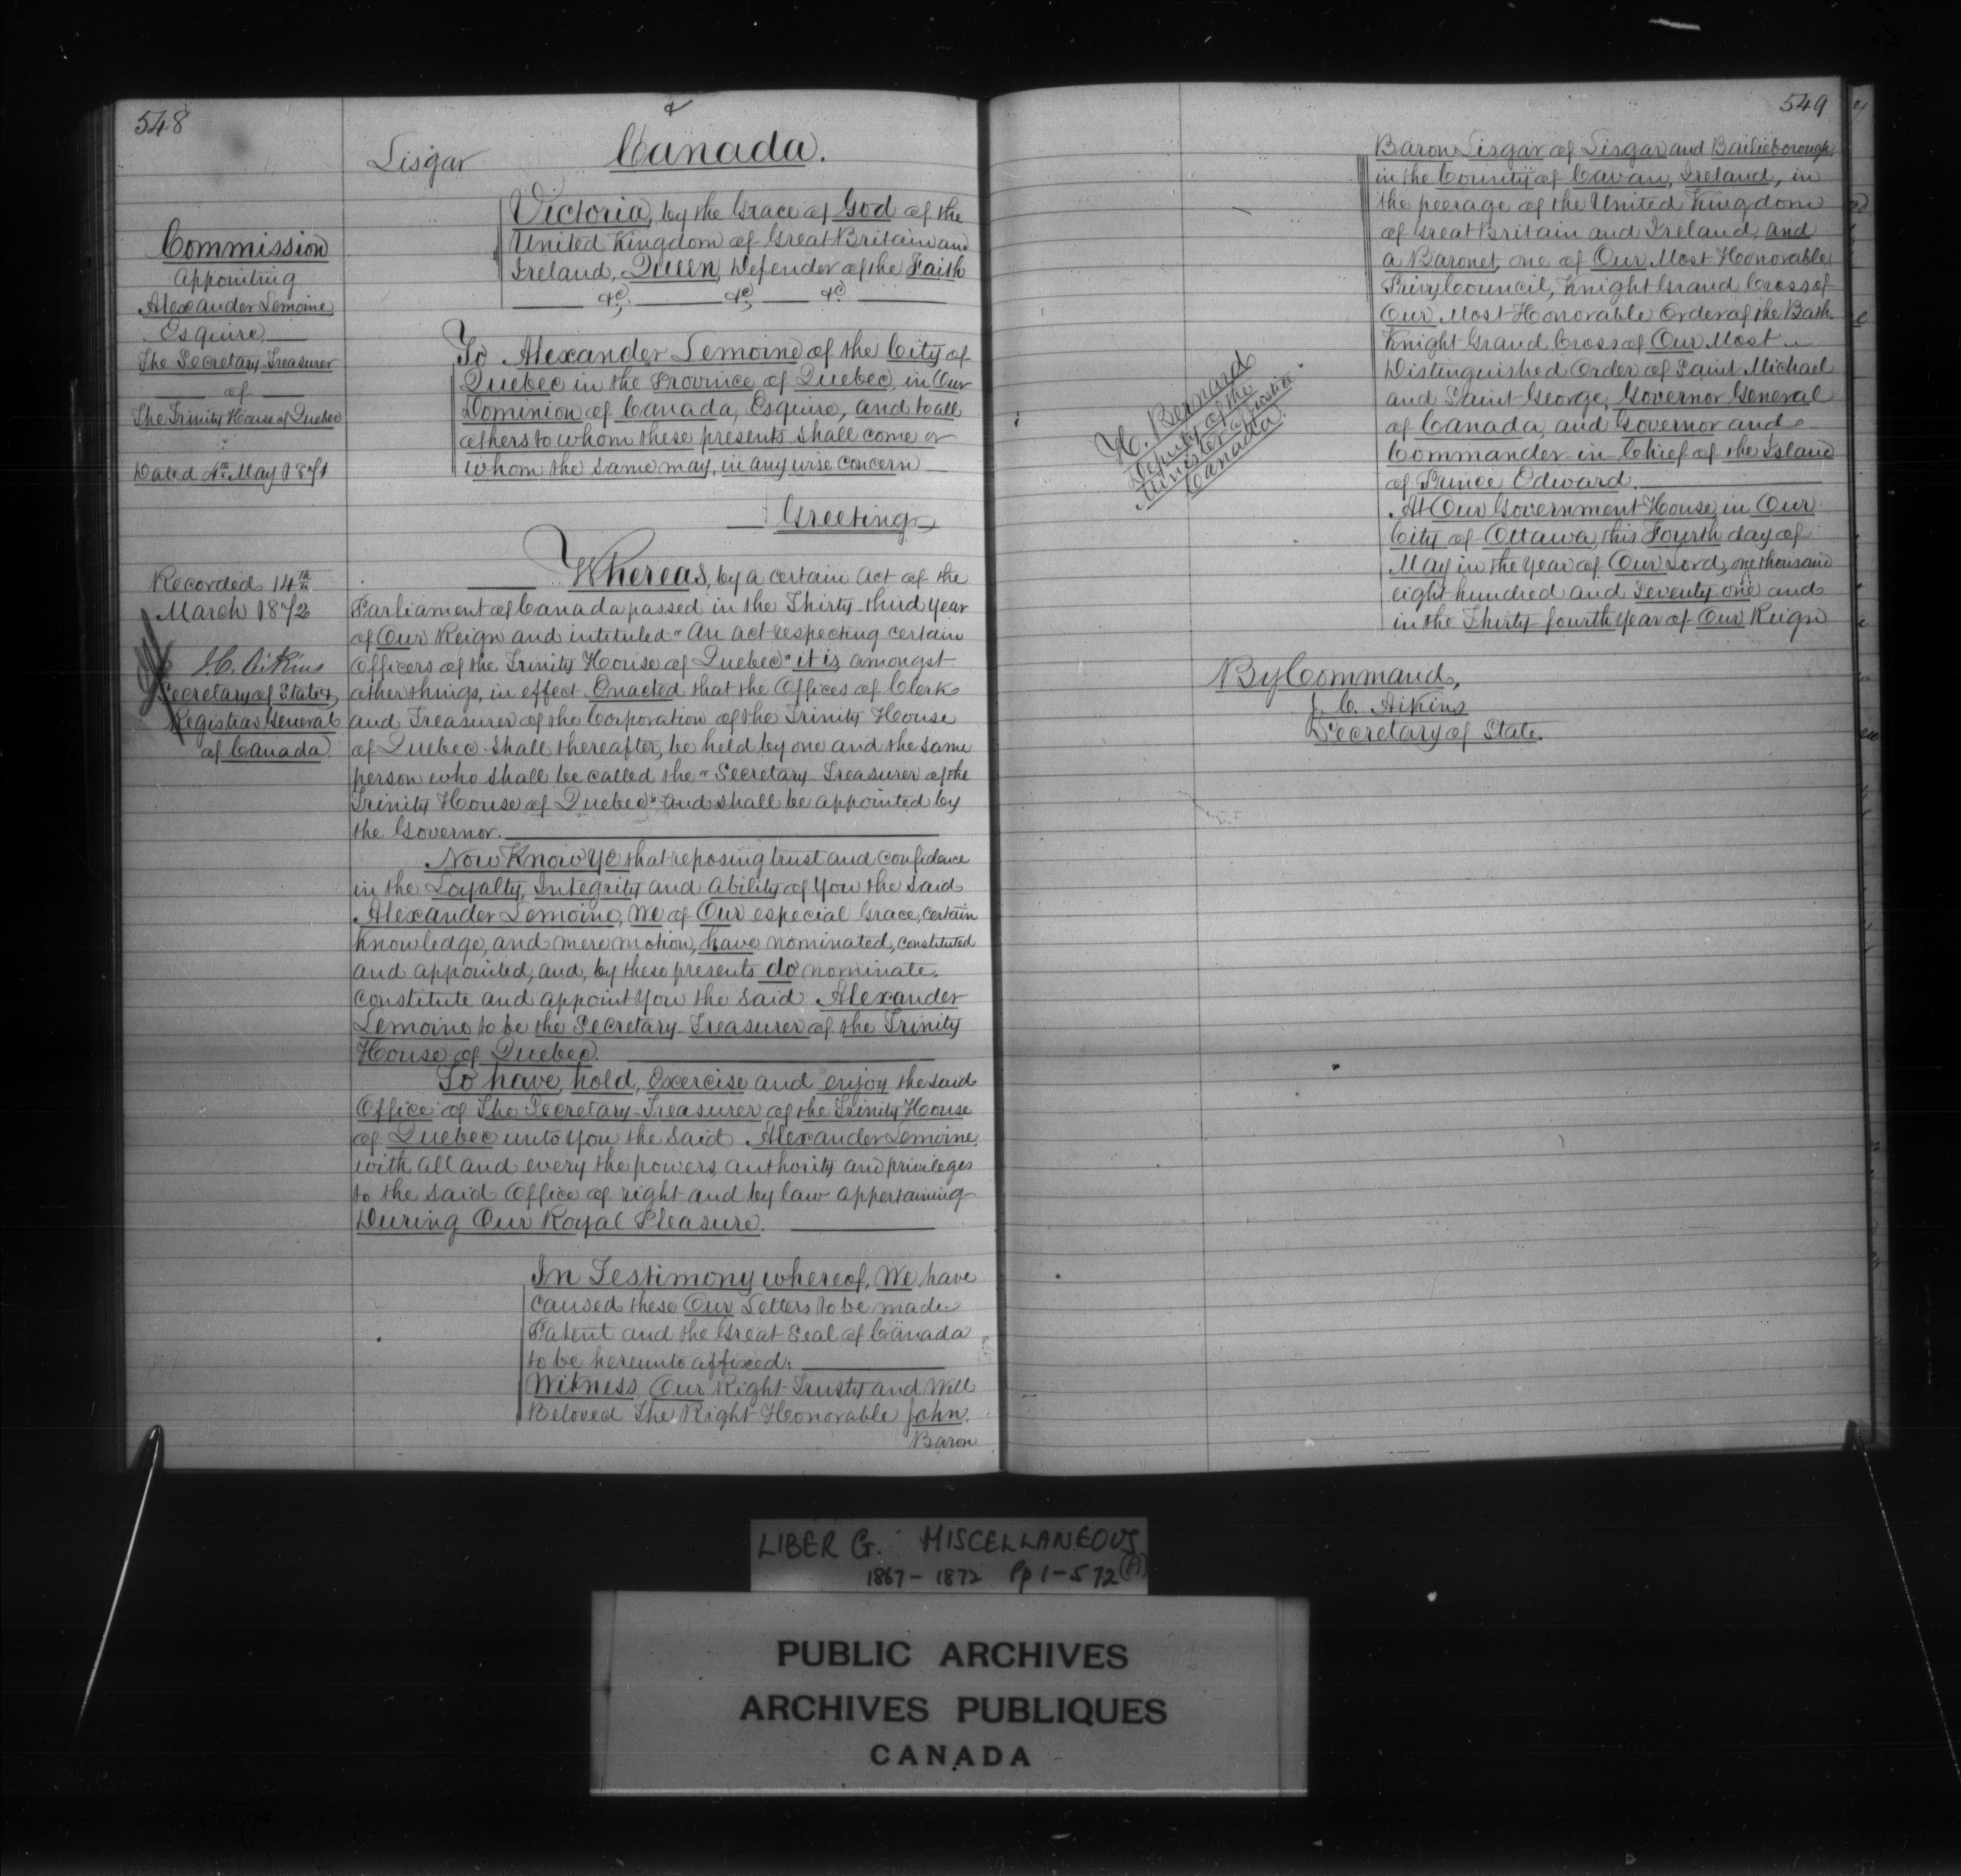 548
Lisgar
Canada.
Commission
appointing
Alexander Lemoine
Esquire
The Secretary Treasurer
of
The Trinity House of Quebec
Dated 4th May 1871
Recorded 14th
March 1872
J.C. Aikins
Secretary of State &
Registrar General
of Canada
Victoria, by the Grace of God of the
United Kingdom of Great Britain and
Ireland, Queen, Defender of the Faith
&c. &c. &c.
To Alexander Lemoine of the City of
Quebec in the Province of Quebec, in Our
Dominion of Canada, Esquire, and to all
others to whom these presents shall come or
whom the same may, in any wise concern
Greeting
Whereas, by a certain Act of the
Parliament of Canada passed in the Thirty-third year
of Our Reign and intituled "An act respecting certain
Officers of the Trinity House of Quebec" it is amongst
other things, in effect Enacted that the Offices of Clerk
and Treasurer of the Corporation of the Trinity House
of Quebec shall thereafter, be held by one and the same
person who shall be called the "Secretary-Treasurer of the
Trinity House of Quebec" and shall be appointed by
the Governor.
Now Know Ye that reposing trust and confidence
in the Loyalty, Integrity and Ability of You the said
Alexander Lemoine, We of Our especial Grace, certain
knowledge, and mere motion, have nominated, constituted
and appointed, and, by these presents do nominate,
constitute and appoint You the said Alexander
Lemoine to be the Secretary-Treasurer of the Trinity
House of Quebec.
To have, hold, Exercise and enjoy the said
Office of The Secretary-Treasurer of the Trinity House
of Quebec unto you the said Alexander Lemoine
with all and every the powers, authority and privileges
to the said Office of right and by law appertaining
During Our Royal Pleasure.
In Testimony whereof, We have
caused these Our Letters to be made
Patent and the Great Seal of Canada
to be hereunto affixed:
Witness, Our Right Trusty and Well
Beloved The Right Honorable John
Baron
549
Baron Lisgar of Lisgar and Bailieborough
in the County of Cavan, Ireland, in
the peerage of the United Kingdom
of Great Britain and Ireland, and
a Baronet, one of Our Most Honorable
Privy Council, Knight Grand Cross of
Our Most Honorable Order of the Bath
Knight Grand Cross of Our Most
Distinguished Order of Saint Michael
and Saint George, Governor General
of Canada, and Governor and
Commander in Chief of the Island
of Prince Edward.
At Our Government House, in Our
City of Ottawa, this Fourth day of
May in the year of Our Lord, one thousand
eight hundred and Seventy one and
in the Thirty-fourth year of Our Reign
H. Bernard
Deputy of the
Minister of Justice
Canada.
By Command,
J. C. Aikins
Secretary of State.
LIBER G. MISCELLANEOUS
1867-1872 Pp 1-572 (A)
PUBLIC ARCHIVES
ARCHIVES PUBLIQUES
CANADA